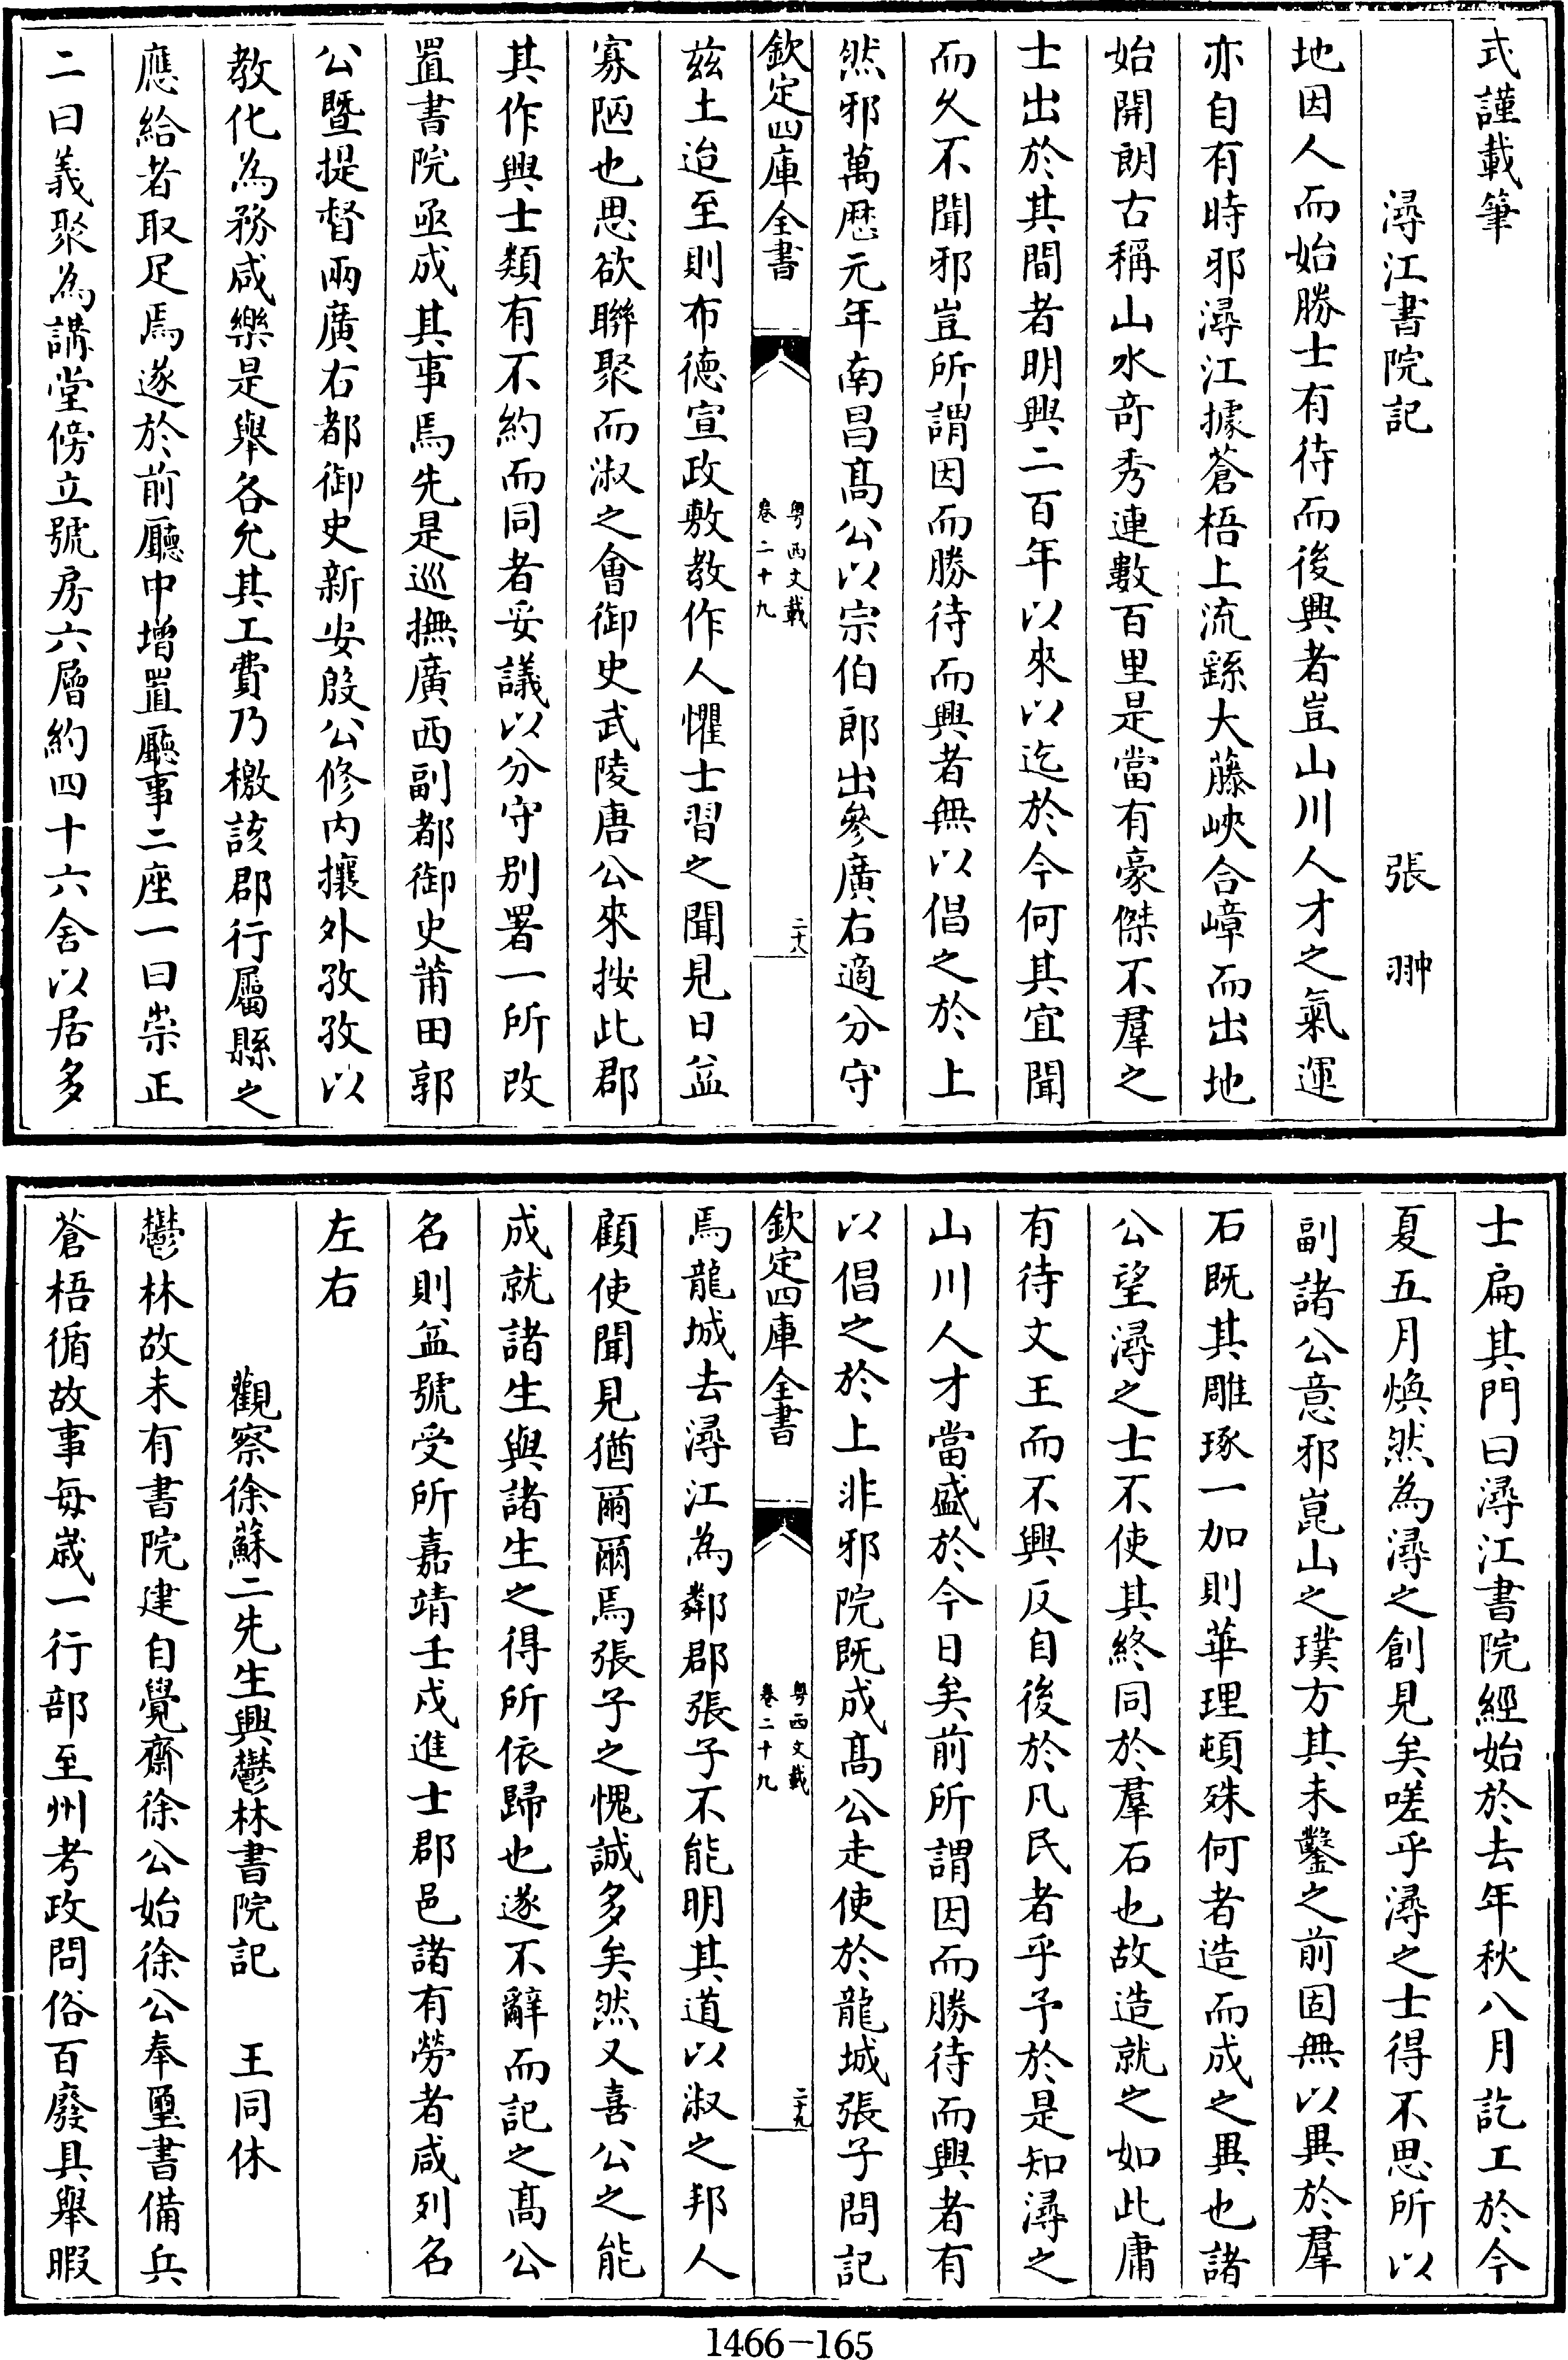 式謹載筆
潯江書院記 張翀
地因人而始勝士有待而後興者豈山川人才之氣運
亦自有時邪潯江據蒼梧上流繇大藤峽合嶂而出地
始開朗古稱山水奇秀連數百里是當有豪傑不羣之
士出於其間者明興二百年以來以迄於今何其宜聞
而久不聞邪豈所謂因而勝待而興者無以倡之於上
然邪萬厯元年南昌髙公以宗伯郎出參廣右適分守
欽定四庫全書
粤西文載
卷二十九
二十八
兹土迨至則布德宣政敷教作人懼士習之聞見日益
寡陋也思欲聯聚而淑之會御史武陵唐公來按此郡
其作興士類有不約而同者妥議以分守别署一所改
置書院亟成其事焉先是巡撫廣西副都御史莆田郭
公暨提督兩廣右都御史新安殷公修内攘外孜孜以
教化為務咸樂是舉各允其工費乃檄該郡行屬縣之
應給者取足焉遂於前廳中增置廳事二座一曰崇正
二曰義聚為講堂傍立號房六層約四十六舍以居多
士扁其門曰潯江書院經始於去年秋八月訖工於今
夏五月煥然為潯之創見矣嗟乎潯之士得不思所以
副諸公意邪崑山之璞方其未鑿之前固無以異於羣
石既其雕琢一加則華理頓殊何者造而成之異也諸
公望潯之士不使其終同於羣石也故造就之如此庸
有待文王而不興反自後於凡民者乎予於是知潯之
山川人才當盛於今日矣前所謂因而勝待而興者有
以倡之於上非邪院既成髙公走使於龍城張子問記
欽定四庫全書
粤西文載
卷二十九
二十九
焉龍城去潯江為鄰郡張子不能明其道以淑之邦人
顧使聞見猶爾爾焉張子之愧誠多矣然又喜公之能
成就諸生與諸生之得所依歸也遂不辭而記之髙公
名則益號受所嘉靖壬戌進士郡邑諸有勞者咸列名
左右
觀察徐蘇二先生興鬱林書院記 王同休
鬱林故未有書院建自覺齋徐公始徐公奉璽書備兵
蒼梧循故事每歲一行部至州考政問俗百廢具舉暇
1466-165